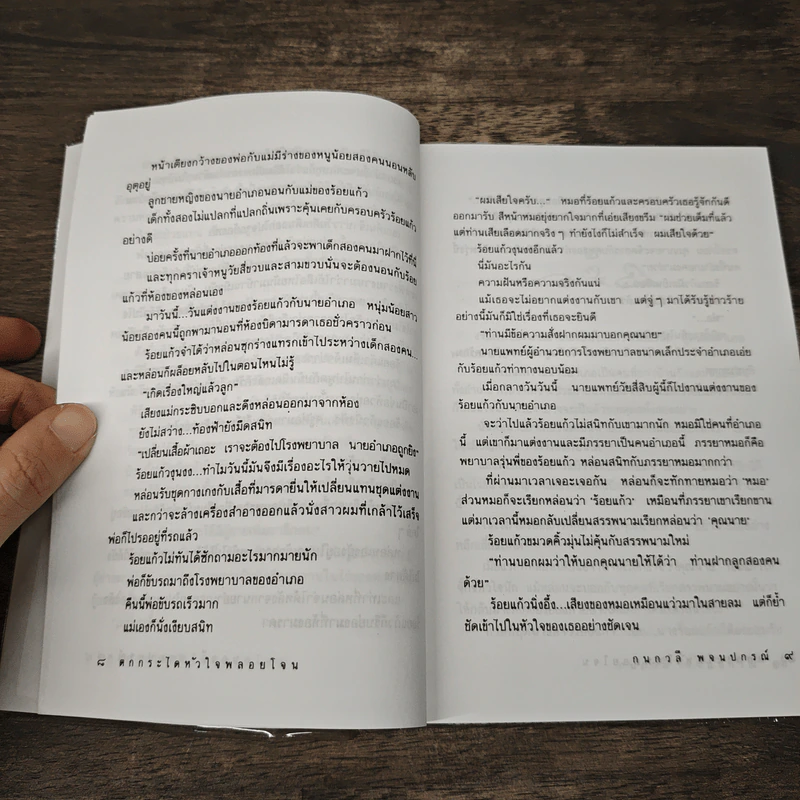 หน้าเตียงกว้างของพ่อกับแม่มีร่างของหนูน้อยสองคนนอนหลับ
อุตุอยู่
ลูกชายหญิงของนายอำเภอนอนกับแม่ของร้อยแก้ว
เด็กทั้งสองไม่แปลกที่แปลกถิ่นเพราะคุ้นเคยกับครอบครัวร้อยแก้ว
อย่างดี
บ่อยครั้งที่นายอำเภอออกท้องที่แล้วจะพาเด็กสองคนมาฝากไว้ที่นี่
และทุกคราเจ้าหนูวัยสี่ขวบและสามขวบนั่นจะต้องนอนกับร้อย
แก้วที่ห้องของหล่อนเอง
มาวันนี้...วันแต่งงานของร้อยแก้วกับนายอำเภอ หนุ่มน้อยสาว
น้อยสองคนนี้ถูกพามานอนที่ห้องบิดามารดาเธอชั่วคราวก่อน
ร้อยแก้วจำได้ว่าหล่อนซุกร่างแทรกเข้าไประหว่างเด็กสองคน...
และหล่อนก็ผล็อยหลับไปในตอนไหนไม่รู้
“เกิดเรื่องใหญ่แล้วลูก”
เสียงแม่กระซิบบอกและดึงหล่อนออกมาจากห้อง
ยังไม่สว่าง...ท้องฟ้ายังมืดสนิท
“เปลี่ยนเสื้อผ้าเถอะ เราจะต้องไปโรงพยาบาล นายอำเภอถูกยิง”
ร้อยแก้วงุนงง...ทำไมวันนี้มันจึงมีเรื่องอะไรให้วุ่นวายไปหมด
หล่อนรับชุดกางเกงกับเสื้อที่มารดายื่นให้เปลี่ยนแทนชุดแต่งงาน
และกว่าจะล้างเครื่องสำอางออกแล้วนั่งสางผมที่เกล้าไว้เสร็จ
พ่อก็ไปรออยู่ที่รถแล้ว
ร้อยแก้วไม่ทันได้ซักถามอะไรมากมายนัก
พ่อก็ขับรถมาถึงโรงพยาบาลของอำเภอ
คืนนี้พ่อขับรถเร็วมาก
แม่เองก็นั่งเงียบสนิท
๘ ตกกระไดหัวใจพลอยโจน
“ผมเสียใจครับ...” หมอที่ร้อยแก้วและครอบครัวเธอรู้จักกันดี
ออกมารับ สีหน้าหมอยุ่งยากใจมากที่เอ่ยเสียงขรึม “ผมช่วยเต็มที่แล้ว
แต่ท่านเสียเลือดมากจริง ๆ ทำยังไงก็ไม่สำเร็จ ผมเสียใจด้วย”
ร้อยแก้วงุนงงอีกแล้ว
นี่มันอะไรกัน
ความฝันหรือความจริงกันแน่
แม้เธอจะไม่อยากแต่งงานกับเขา แต่จู่ ๆ มาได้รับรู้ข่าวร้าย
อย่างนี้มันก็มิใช่เรื่องที่เธอจะยินดี
“ท่านมีข้อความสั่งฝากผมมาบอกคุณนาย”
นายแพทย์ผู้อำนวยการโรงพยาบาลขนาดเล็กประจำอำเภอเอ่ย
กับร้อยแก้วท่าทางนอบน้อม
เมื่อกลางวันวันนี้ นายแพทย์วัยสี่สิบผู้นี้ก็ไปงานแต่งงานของ
ร้อยแก้วกับนายอำเภอ
จะว่าไปแล้วร้อยแก้วไม่สนิทกับเขามากนัก หมอมิใช่คนที่อำเภอ
นี้ แต่เขาก็มาแต่งงานและมีภรรยาเป็นคนอำเภอนี้ ภรรยาหมอก็คือ
พยาบาลรุ่นพี่ของร้อยแก้ว หล่อนสนิทกับภรรยาหมอมากกว่า
ที่ผ่านมาเวลาเจอะเจอกัน หล่อนก็จะทักทายหมอว่า ‘หมอ’
ส่วนหมอก็จะเรียกหล่อนว่า ‘ร้อยแก้ว’ เหมือนที่ภรรยาเขาเรียกขาน
แต่มาเวลานี้หมอกลับเปลี่ยนสรรพนามเรียกหล่อนว่า ‘คุณนาย’
ร้อยแก้วขมวดคิ้วมุ่นไม่คุ้นกับสรรพนามใหม่
“ท่านบอกผมว่าให้บอกคุณนายให้ได้ว่า ท่านฝากลูกสองคน
ด้วย”
ร้อยแก้วนิ่งอึ้ง...เสียงของหมอเหมือนแว่วมาในสายลม แต่ก็ย้ำ
ชัดเข้าไปในหัวใจของเธออย่างชัดเจน
กนกวลี พจนปกรณ์ ๙